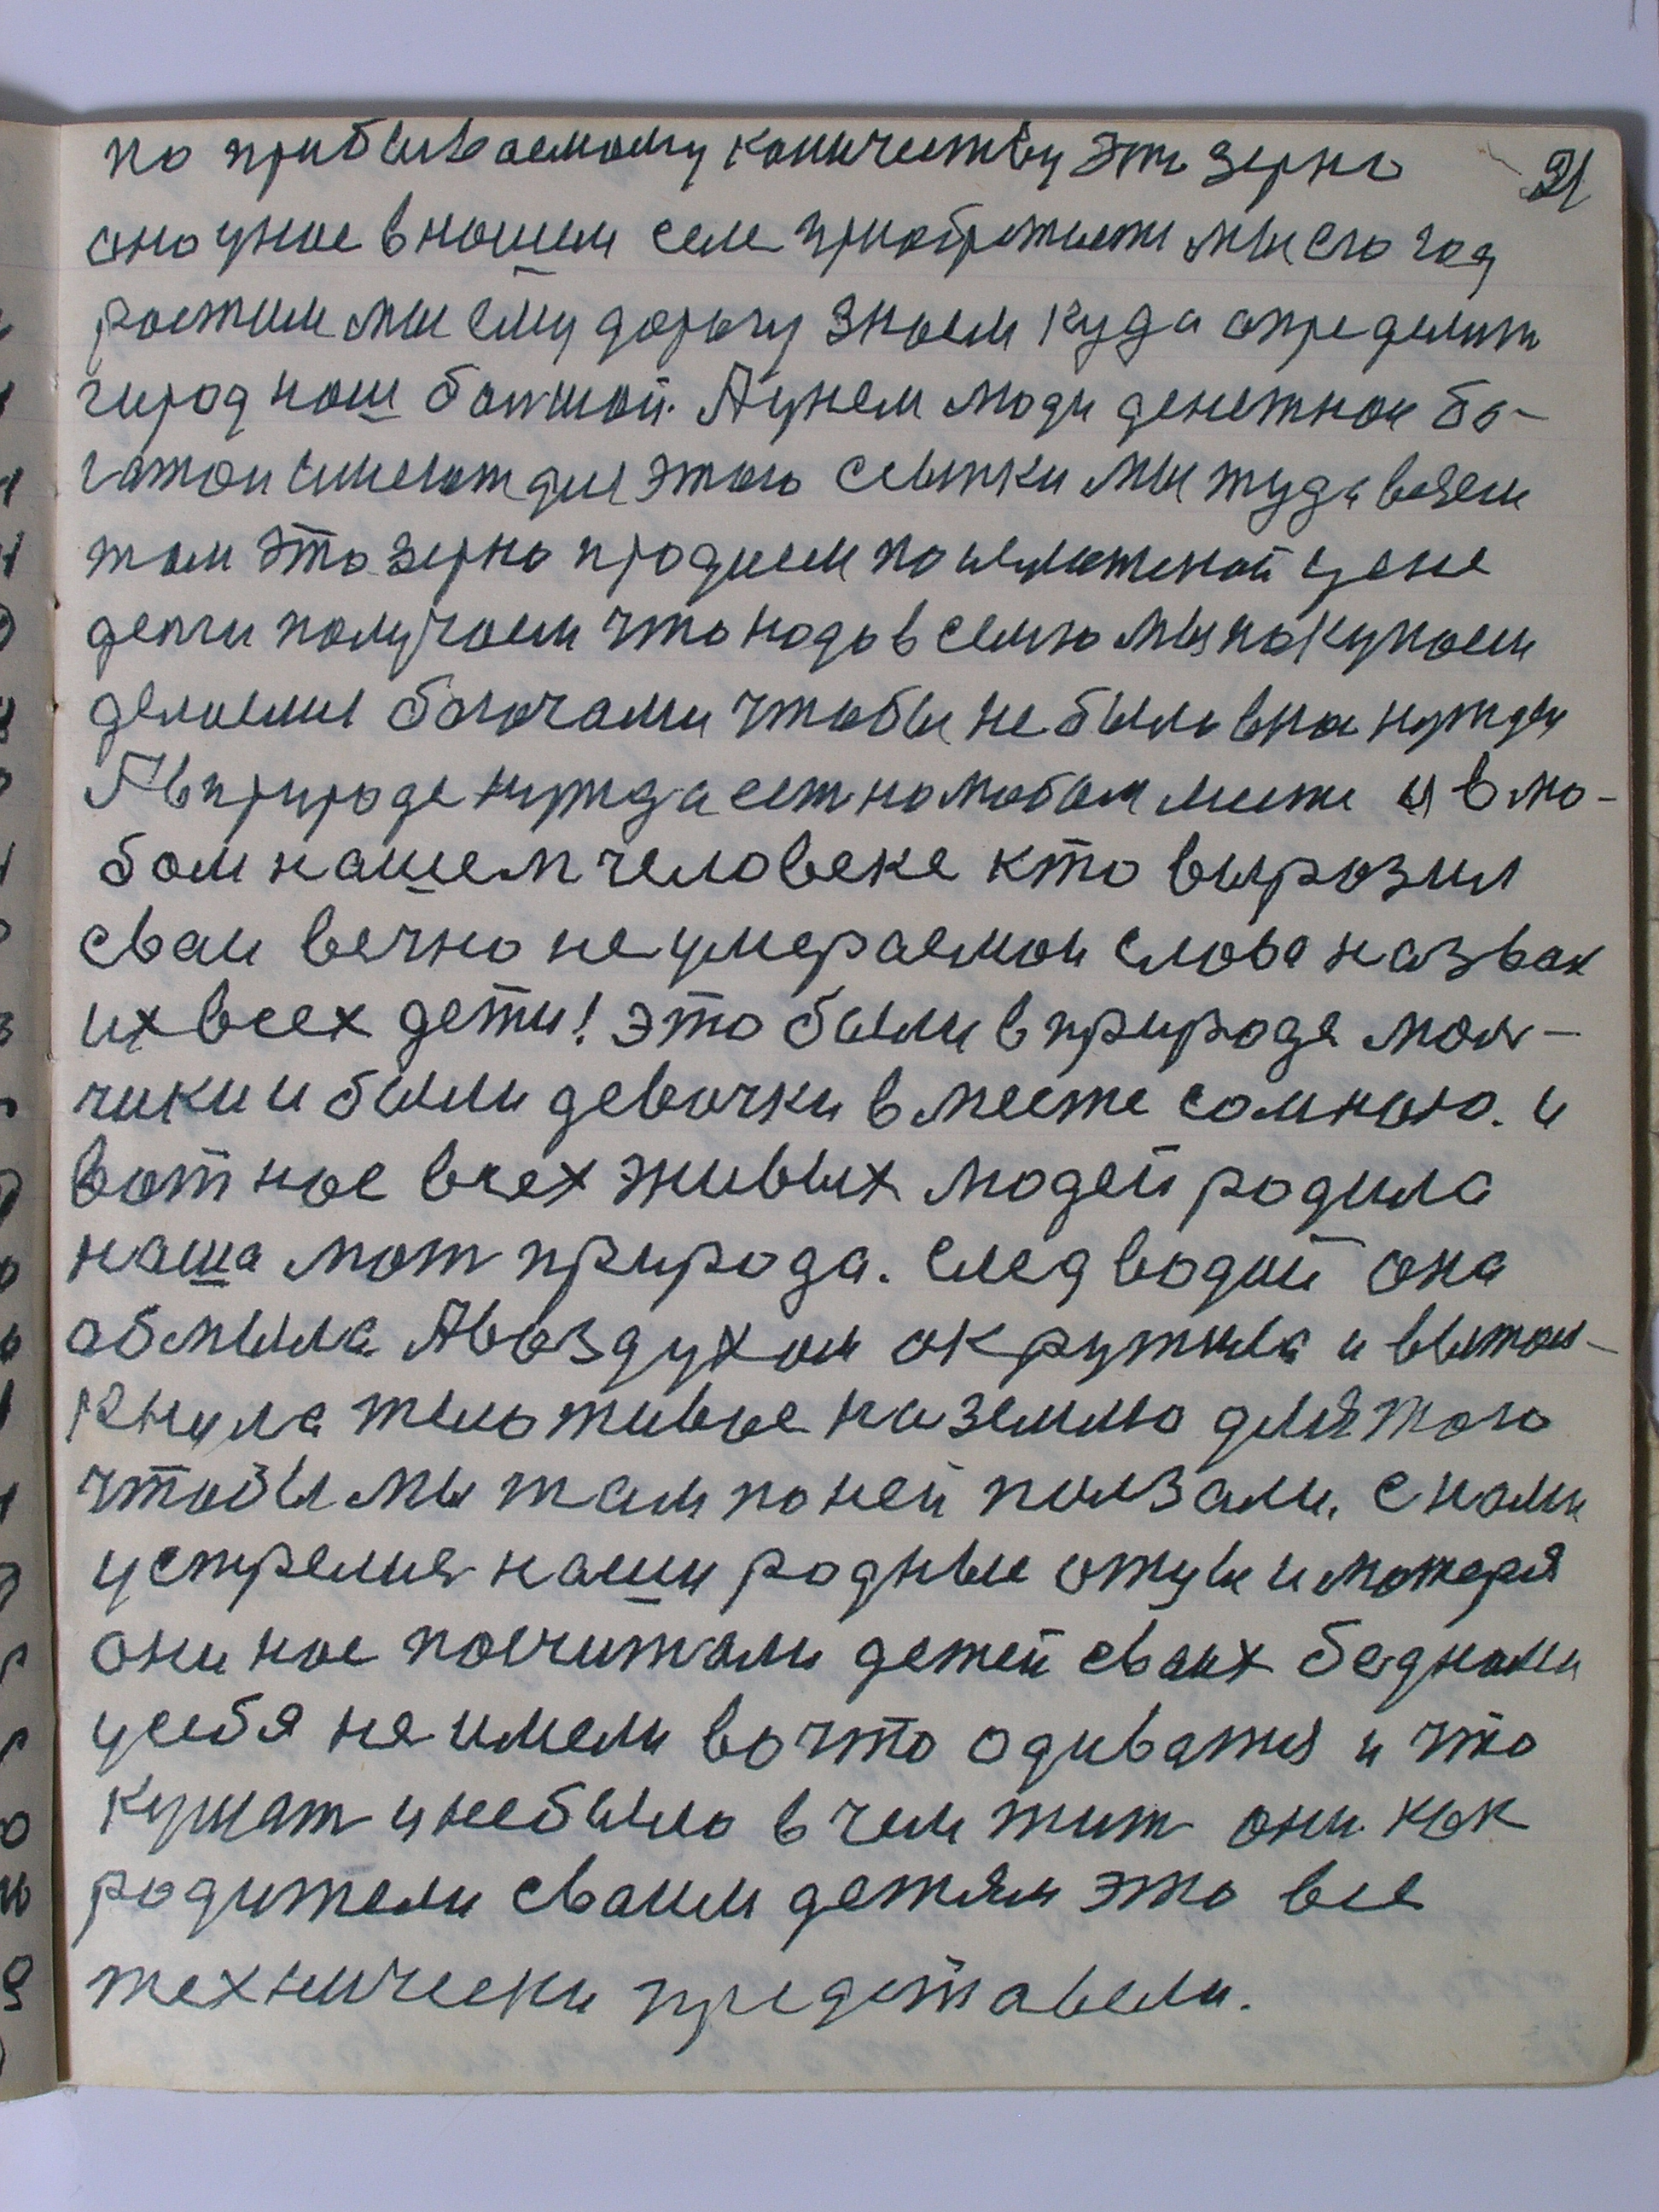 по прибиваемому количеству это зерно 21
оно унас в нашем селе приобретает мы его год
ростим мы ему дорогу знаем куда определит
город наш болшой. А унем люди денежнои бо-
гатои имеют для этого сыпки мы туда везем
там это зерно продаем по цене
денги получаем что надо в семю мы покупаем
делаемся богачами чтобы не было вна нужды
А в природе нужда ест на любом месте и в лю-
бом нашем человеке кто выразил
сваи вечно не умераемои слова назвал
их всех дети! это были в природе мол-
чики и были девочки в месте со мною. и
вот нас всех живых людей родила
наша мат природа. след водой она
обмыла А воздухом окружила и вытол-
кнула тело живое на землю для того
чтобы мы там по ней ползали. с нами
устрелис наши родные отцы и матеря
они нас посчитали детей сваих бедноми
у себя не имели во что одиватся и что
кушат и небыло в чем жит они как
родители сваим детям это все
технически представели.